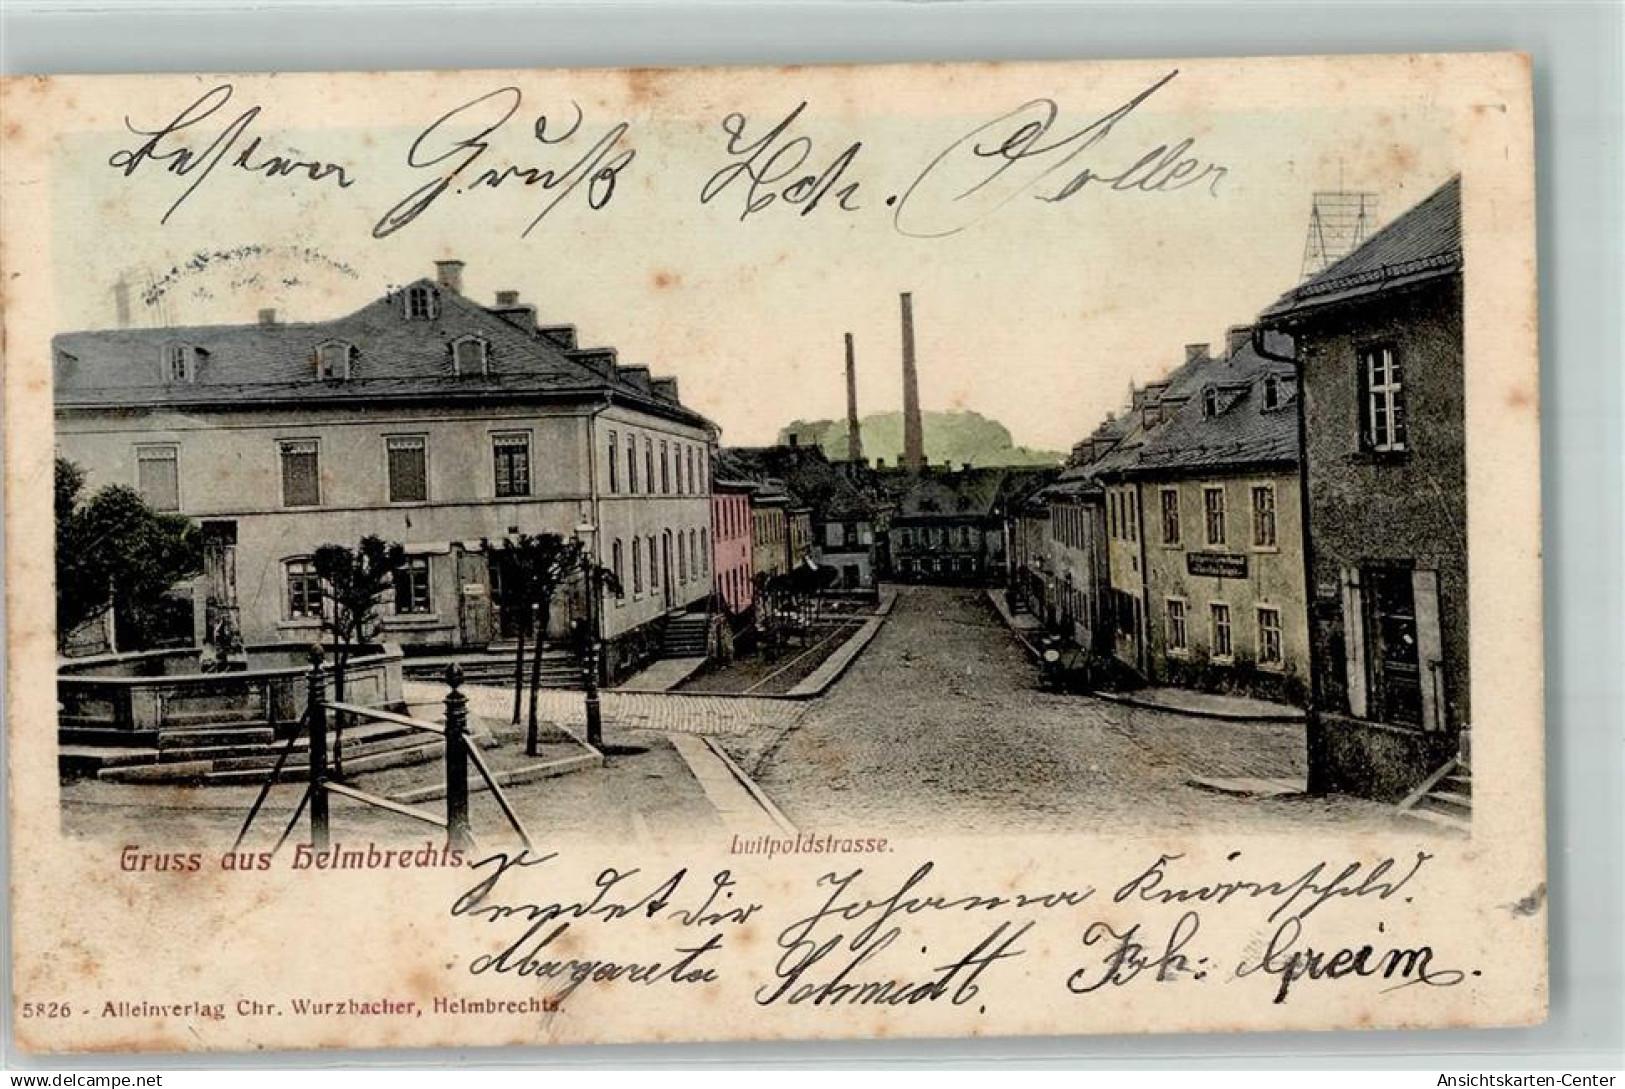 Gruß
Soller
Gruss aus Helmbrechts.
Luitpoldstrasse.
Sendet dir Johanna Knörnschild.
Margareta Schmidt. Greim.
5826 - Alleinverlag Chr. Wurzbacher, Helmbrechts.
Ansichtskarten-Center